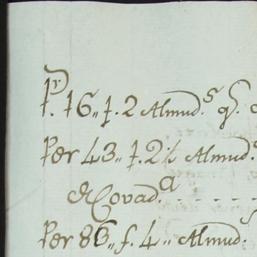 Pr. 16,, f. 2 Almud.s q.
Per 43,, f. 2½ Almud.s
& Covad.a . . . . . .
Per 86,, f. 4,, Almud.